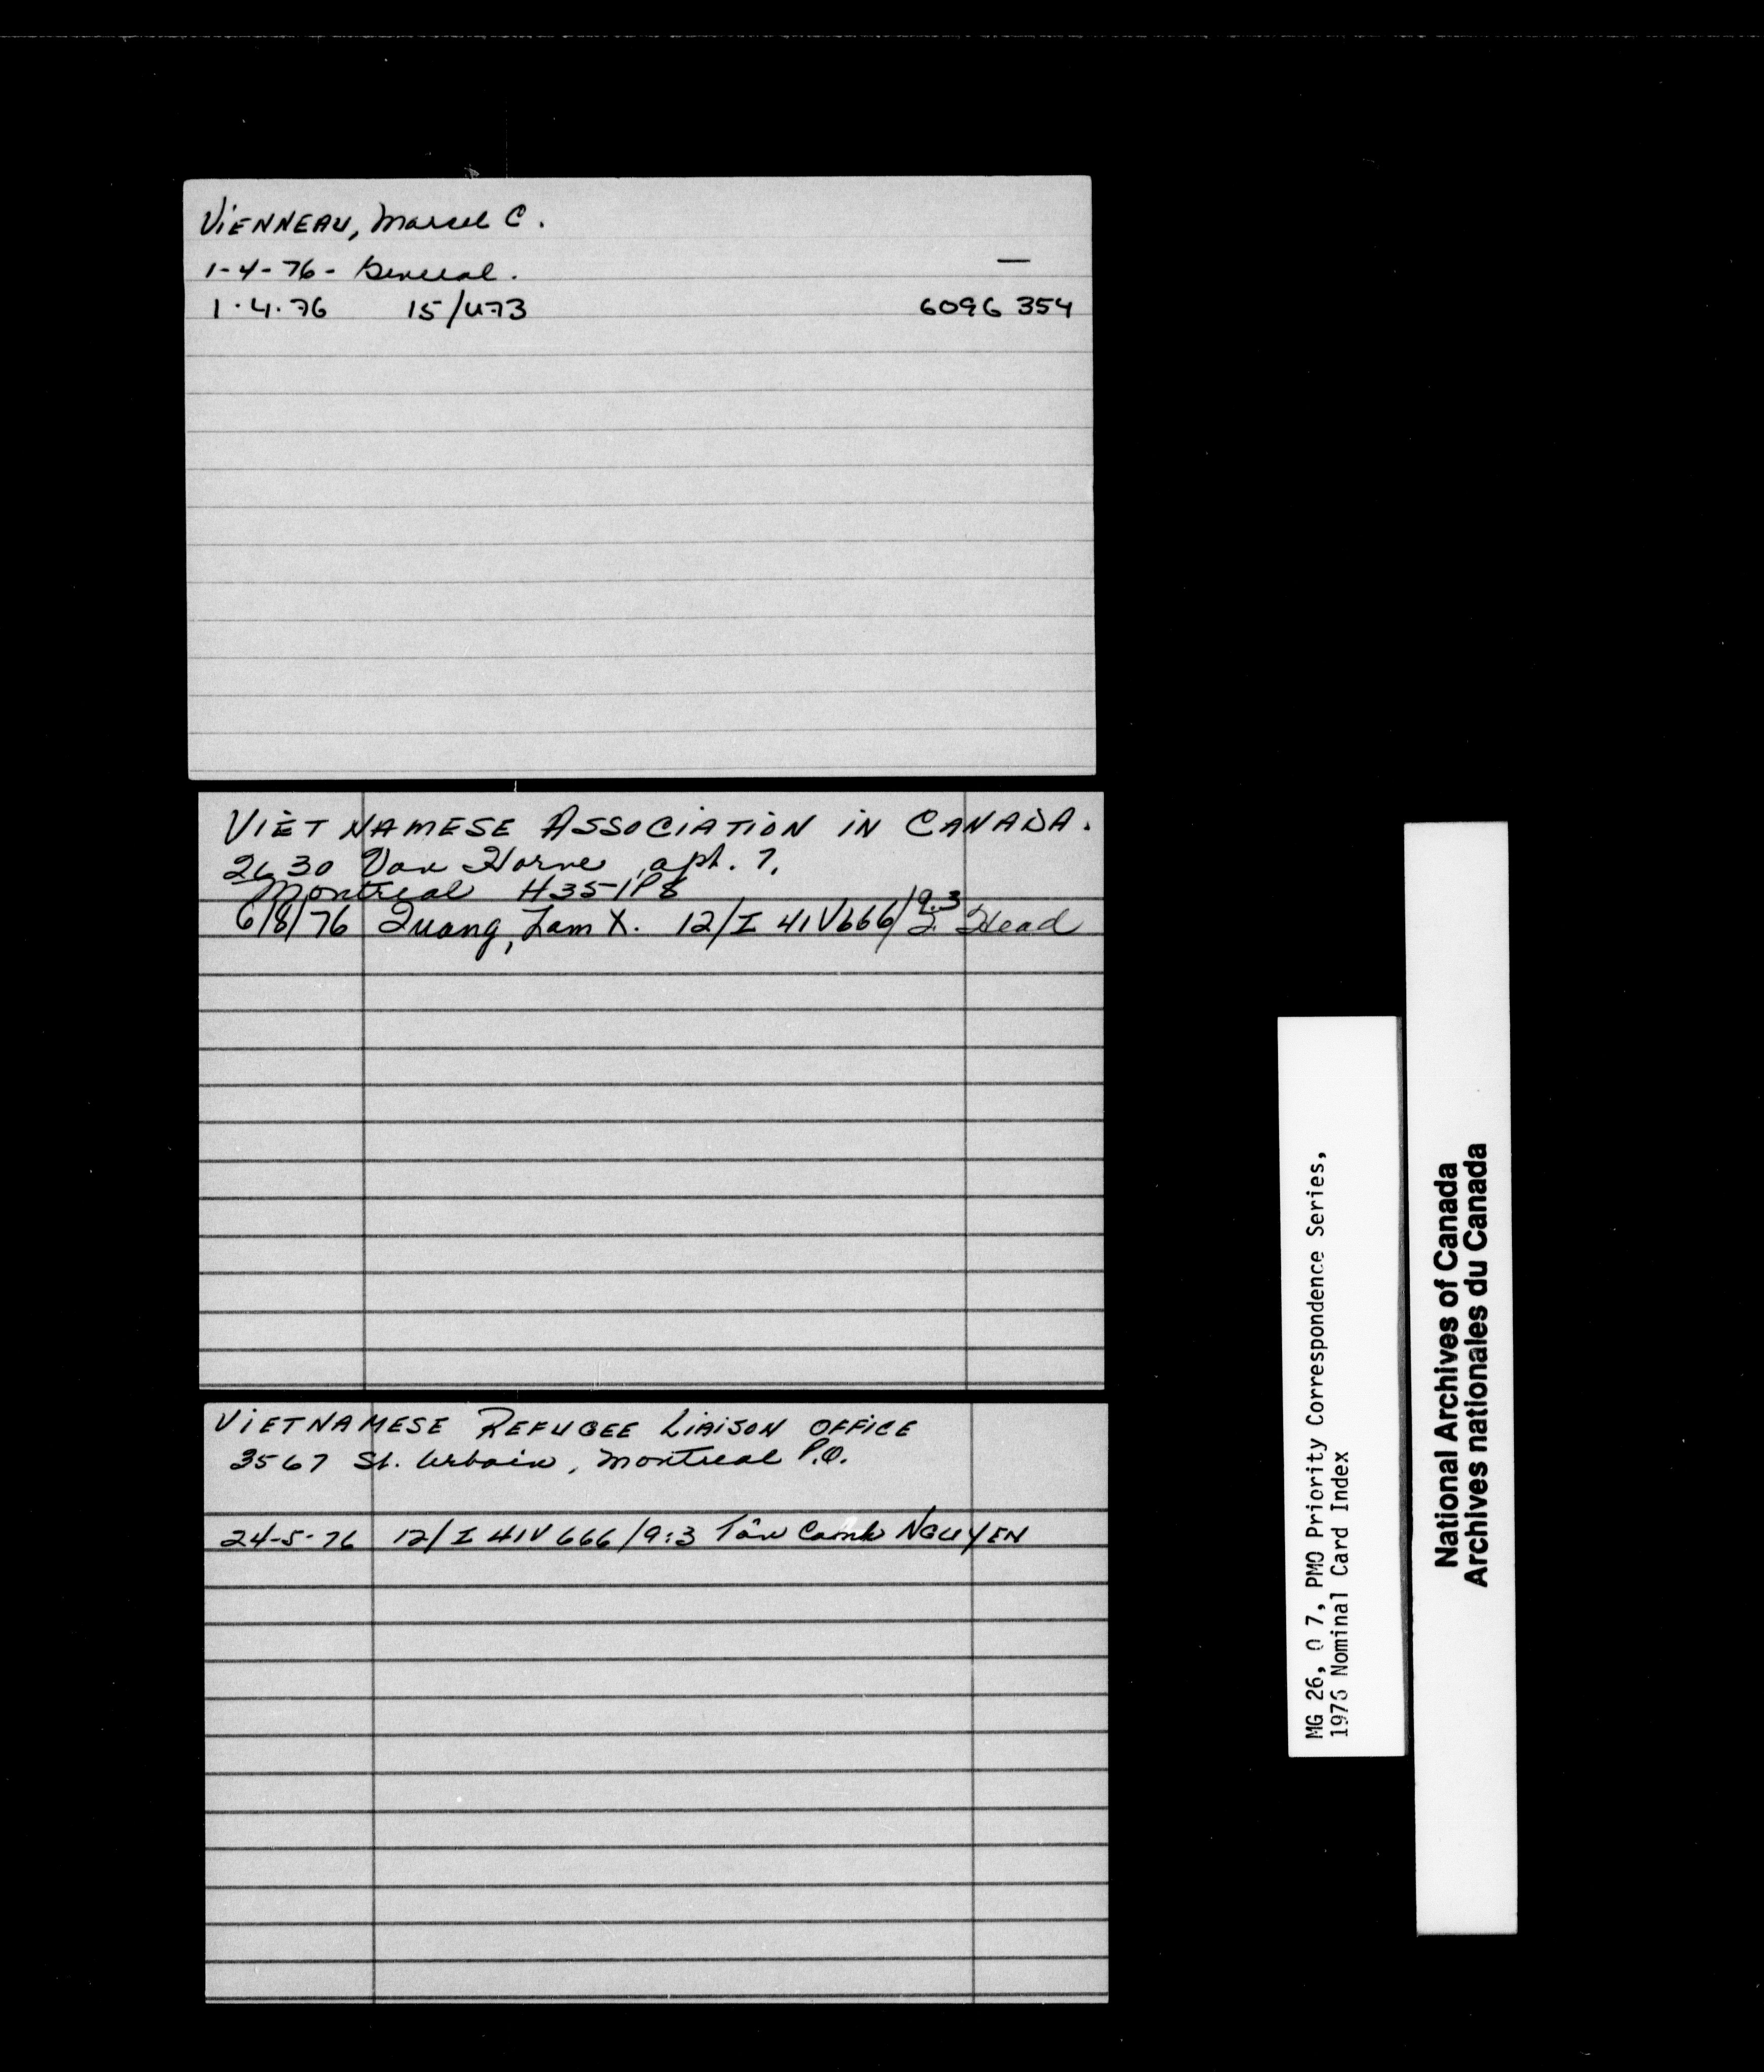 ViENNEAU, Marcel C.
1-4-76 - General. —
1.4.76 15/U73 6096 354
ViETNAMESE ASSOCiATiON iN CANADA.
2630 Van Horne, apt. 7,
Montreal H3S1P8
6/8/76 Quang, Lam X. 12/I 41V666/9.3 Head
ViETNAMESE REFUGEE LiAiSON OFFiCE
3567 St. Urbain, Montreal P.Q.
24-5-76 12/I 41V 666/9:3 Tân Canh NGUYEN
MG 26, O 7, PMO Priority Correspondence Series,
1976 Nominal Card Index
National Archives of Canada
Archives nationales du Canada